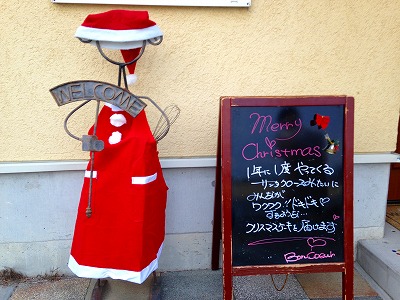 WELCOME
Merry
Christmas
1年に1度やってくる
サンタクロースみたいに
みんなが
ワクワク!!ドキドキ
するような…
クリスマスケーキを届けます
Bon Coeur